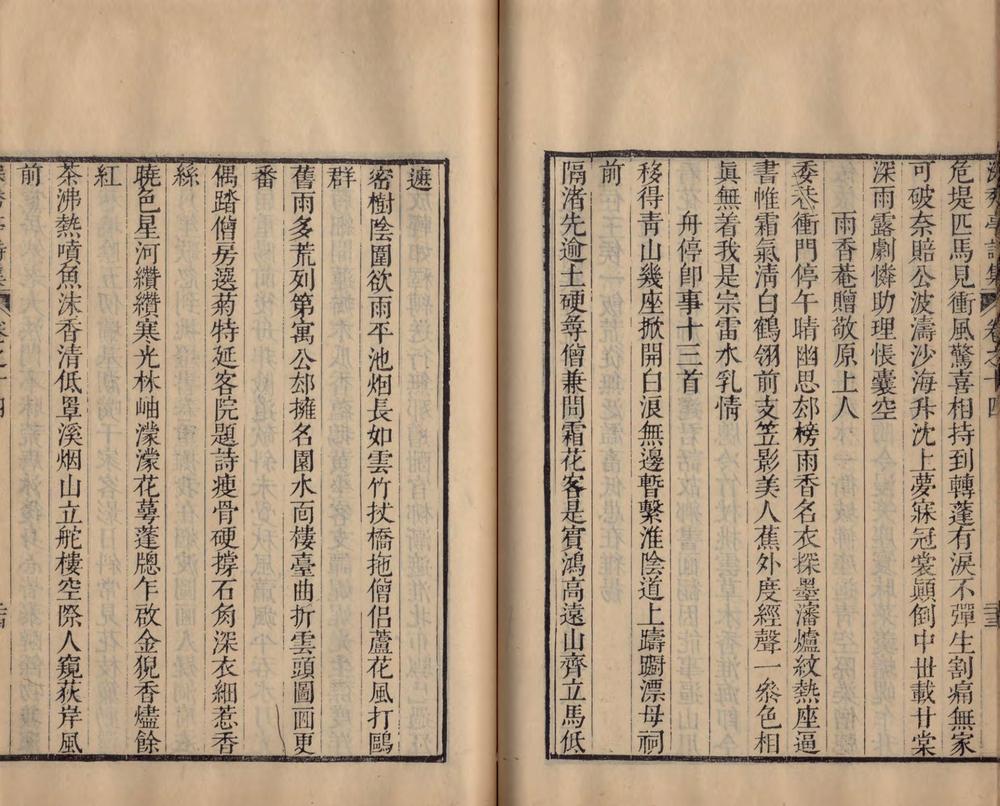 危堤匹馬見衝風驚喜相持到轉蓬有淚不彈生割痛無家
可破奈賠公波濤沙海升沈上夢寐冠裳顚倒中丗載甘棠
深雨露劇憐助理悵囊空
雨香菴贈敬原上人
委巷衝門停午晴幽思郄榜雨香名衣探墨瀋爐紋熱座逼
書帷霜氣淸白鶴翎前支笠影美人蕉外度經聲一叅色相
眞無着我是宗雷水乳情
舟停卽事十三首
移得靑山幾座掀開白浪無邊暫繫淮陰道上躊躕漂母祠
前
隔渚先逾土硬尋僧兼問霜花客是賓鴻高遠山齊立馬低
遮
密樹陰圍欲雨平池烟長如雲竹扙橋拖僧侶蘆花風打鷗
群
舊雨多荒列第寓公郄擁名園水面樓臺曲折雲頭圖画更
番
偶踏僧房選菊特延客院題詩瘦骨硬撐石角深衣細惹香
絲
曉色星河纘纘寒光林岫濛濛花蕚蓬牎乍啟金猊香燼餘
紅
茶沸熱噴魚沫香清低罩溪烟山立舵樓空際人窺荻岸風
前